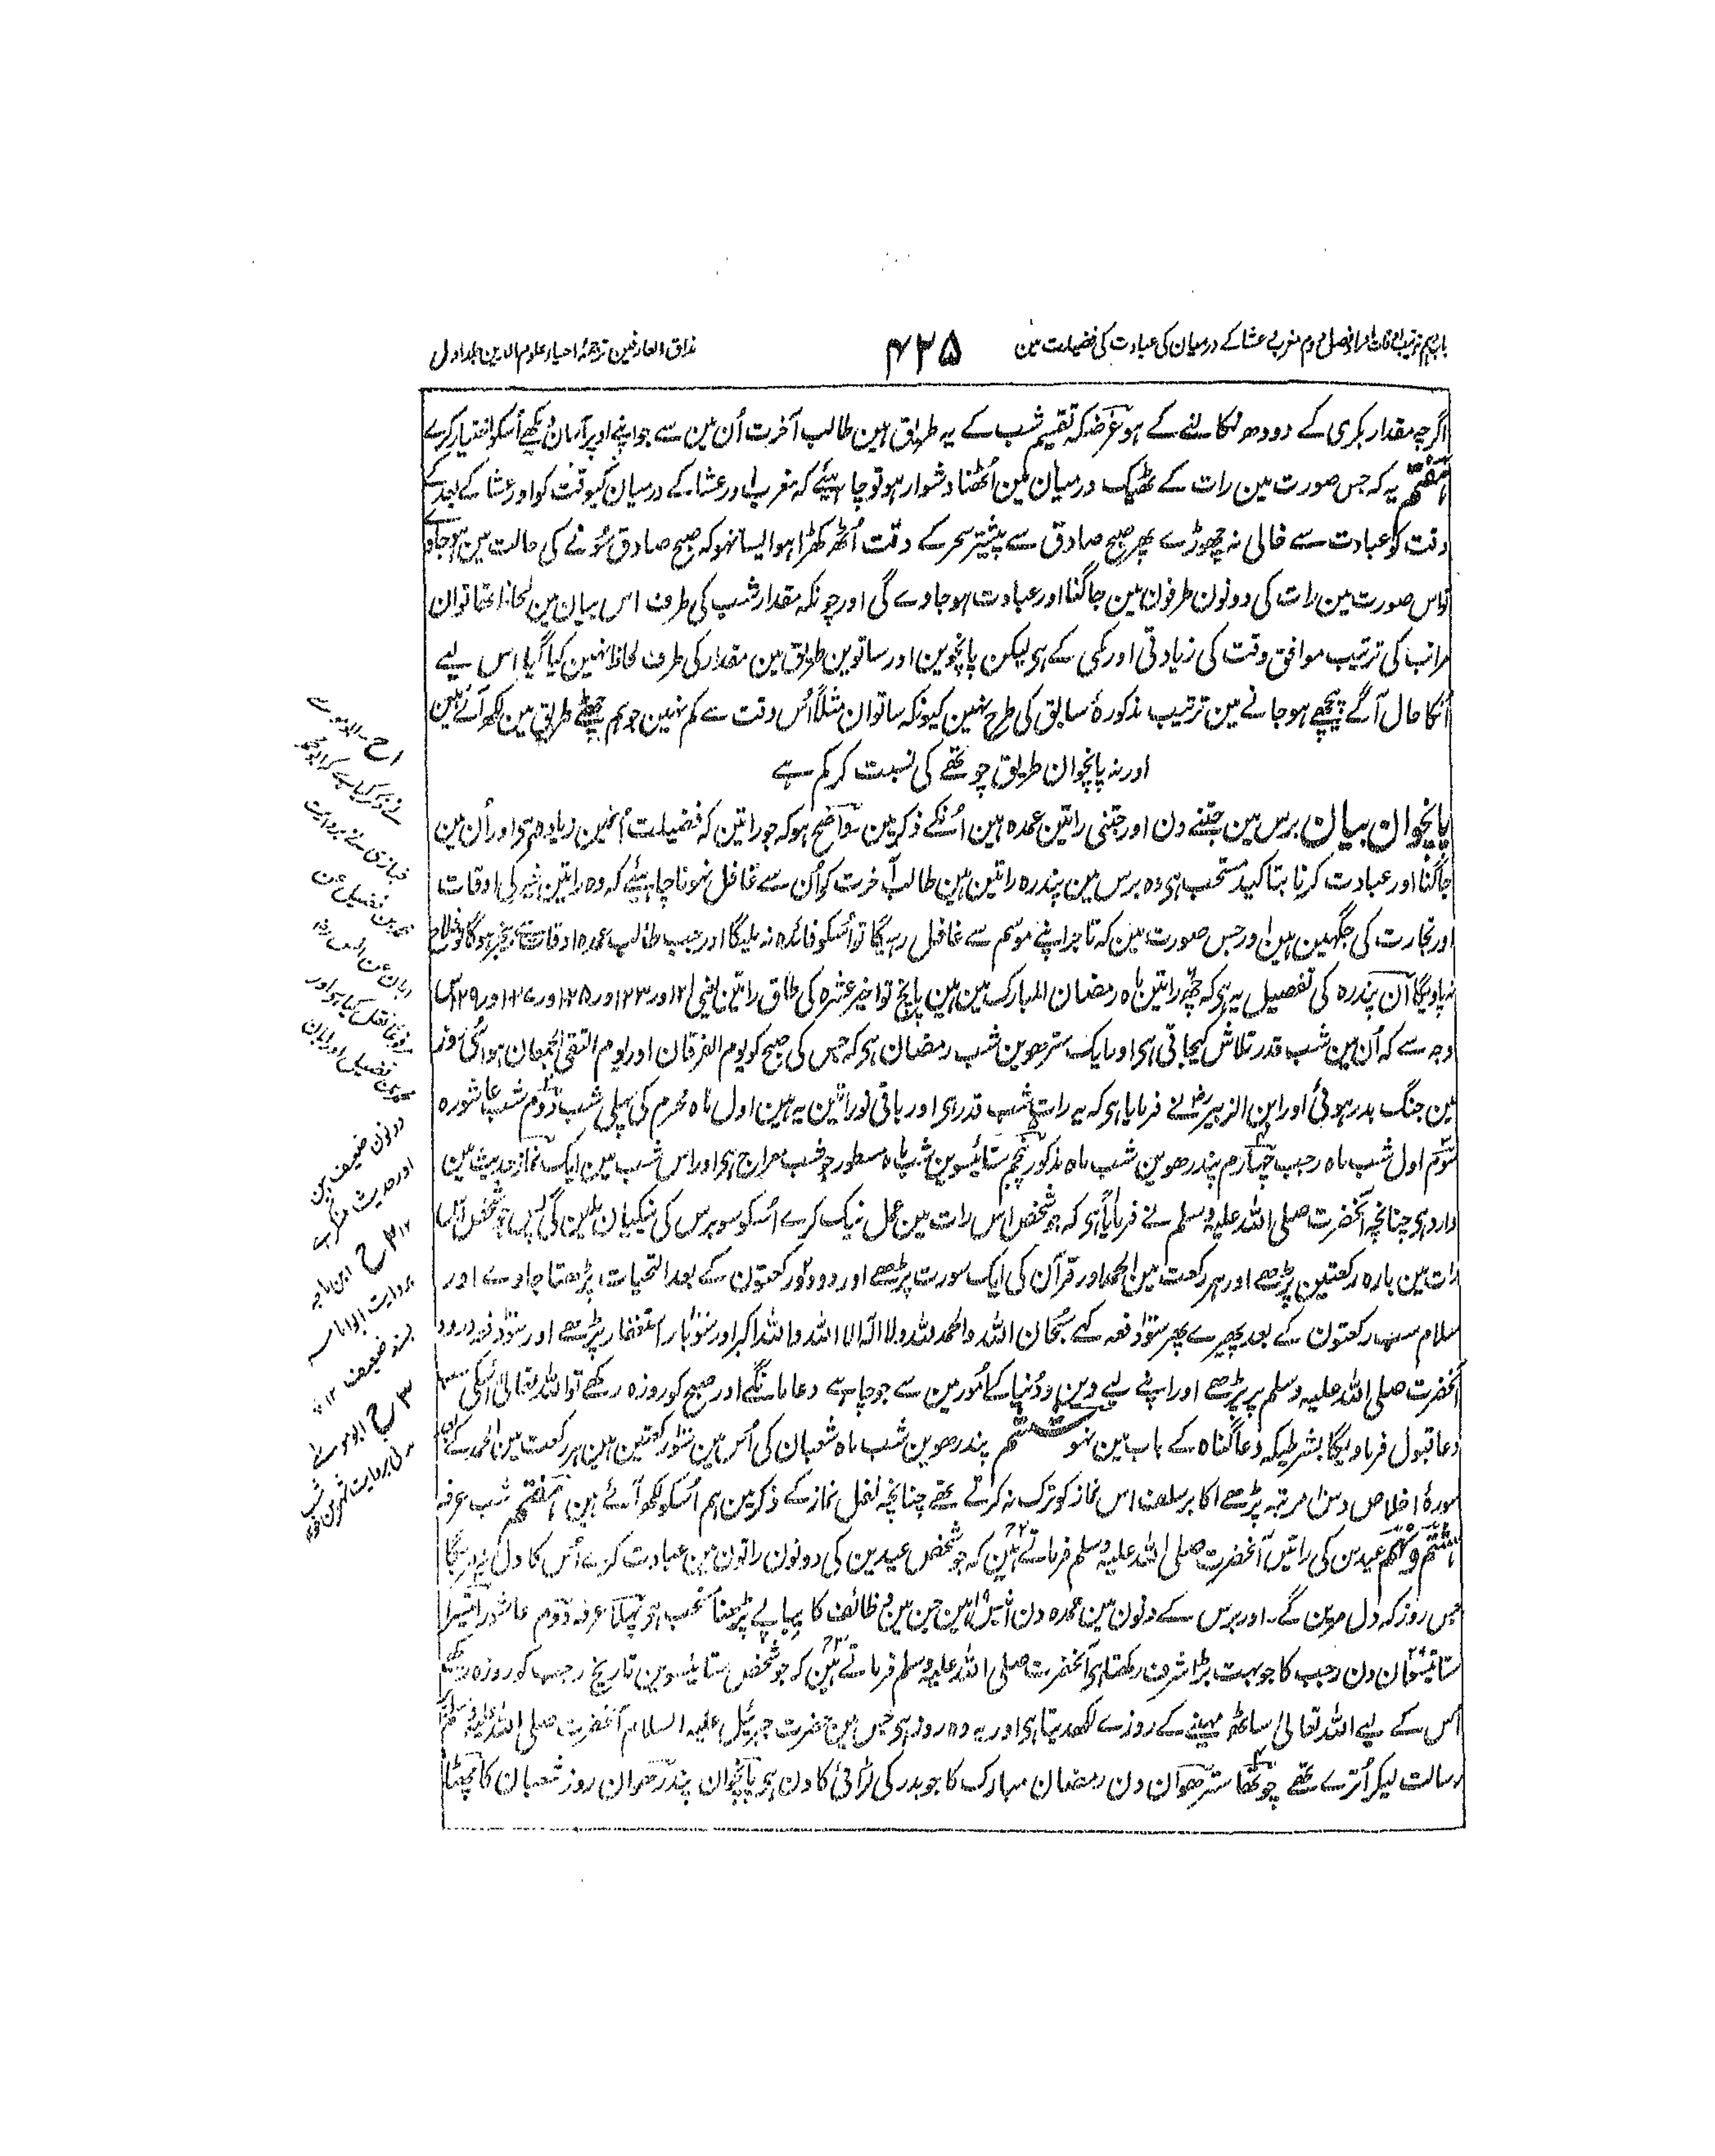 باب دہم ترتیب اوقات اوراد فصل دوم مغرب و عشا کے درمیان کی عبادت کی فضیلت مین
۴۲۵
مذاق العارفین ترجمۂ احیاء علوم الدین جلد اول
اگرچہ مقدار بکری کے دودھ نکالنے کے ہو غرضکہ تقسیم شب کے یہ طریق ہین طالب آخرت اُن مین سے جو اپنے اوپر آسان دیکھے اُسکو اختیار کرے
ہفتم یہ کہ جس صورت مین رات کے ٹھیک درمیان مین اُٹھنا دشوار ہو تو چاہیئے کہ مغرب اور عشا کے درمیان کیوقت کو اور عشا کے بعد کے
وقت کو عبادت سے خالی نہ چھوڑے پھر صبح صادق سے پیشتر سحر کے وقت اُٹھ کھڑا ہو ایسا نہو کہ صبح صادق سُونے کی حالت مین ہوجاوے
تو اس صورت مین رات کی دونون طرفون مین جاگنا اور عبادت ہوجاوے گی اور چونکہ مقدار شب کی طرف اس بیان مین لحاظ تھا تو ان
مراتب کی ترتیب موافق وقت کی زیادتی اور کمی کے ہی لیکن پانچوین اور ساتوین طریق مین مقدار کی طرف لحاظ نہین کیا گیا اس لیے
اُنکا حال آگے پیچھے ہوجانے مین ترتیب مذکورۂ سابق کی طرح نہین کیونکہ ساتوان مثلاً اُس وقت سے کم نہین جو ہم چھٹے طریق مین لکھ آئے ہین
اور نہ پانچوان طریق چوتھے کی نسبت کر کم ہے
پانچوان بیان برس مین جتنے دن اور جتنی راتین عمدہ ہین اُنکے ذکر مین واضح ہو کہ جو راتین کہ فضیلت اُنھین زیادہ ہی اور اُن مین
جاگنا اور عبادت کرنا بتاکید مستحب ہی وہ برس مین پندرہ راتین ہین طالب آخرت کو اُن سے غافل نہونا چاہیئے کہ وہ راتین خیر کی اوقات
اور تجارت کی جگہین ہین اور جس صورت مین کہ تاجر اپنے موسم سے غافل رہیگا تو اُسکو فائدہ نہ ملیگا اور جب طالب عمدہ اوقات سے بیخبر ہوگا تو فلاح
نہ پاویگا اُن پندرہ کی تفصیل یہ ہی کہ چھ راتین ماہ رمضان المبارک مین ہین پانچ تو اخیر عشرہ کی طاق راتین یعنی ۲۱ اور ۲۳ اور ۲۵ اور ۲۷ اور ۲۹ اس
وجہ سے کہ اُن مین شب قدر تلاش کیجاتی ہی اور ایک سترھوین شب رمضان ہی کہ جس کی صبح کو یوم الفرقان اور یوم التقی الجمعان ہوا اُسی روز
مین جنگ بدر ہوئی اور ابن الزبیرؓ نے فرمایا ہی کہ یہ رات شب قدر ہی اور باقی نو راتین یہ ہین اول ماہ محرم کی پہلی شب دوم شب عاشورہ
سوم اول شب ماہ رجب چہارم پندرھوین شب ماہ مذکور پنجم ستائیسوین شب ماہ مسطور جو شب معراج ہی اور اس شب مین ایک نماز حدیث مین
وارد ہی چنانچہ آنحضرت صلی اللہ علیہ وسلم نے فرمایا ہی کہ جو شخص اس رات مین عمل نیک کرے اُسکو سو برس کی نیکیان ملین گی پس جو شخص اس
رات مین بارہ رکعتین پڑھے اور ہر رکعت مین الحمد اور قرآن کی ایک سورت پڑھے اور دو دو رکعتون کے بعد التحیات پڑھتا جاوے اور
سلام سب رکعتون کے بعد پھیرے پھر سو دفعہ کہے سُبحان اللہ والحمد للہ ولا الہ الا اللہ واللہ اکبر اور سو بار استغفار پڑھے اور سو دفعہ درود
آنحضرت صلی اللہ علیہ وسلم پر پڑھے اور اپنے لیے دین و دُنیا کے اُمور مین سے جو چاہے دعا مانگے اور صبح کو روزہ رکھے تو اللہ تعالیٰ اُسکی سب
دعا قبول فرماویگا بشرطیکہ دعا گناہ کے باب مین نہو ششم پندرھوین شب ماہ شعبان کی اُس مین سو رکعتین ہین ہر رکعت مین الحمد کے بعد
سورۂ اخلاص دس مرتبہ پڑھے اکابر سلف اس نماز کو ترک نہ کرتے تھے چنانچہ نفل نماز کے ذکر مین ہم اُسکو لکھ آئے ہین ہفتم شب عرفہ
ہشتم و نہم عیدین کی راتین آنحضرت صلی اللہ علیہ وسلم فرماتے ہین کہ جو شخص عیدین کی دونون راتون مین عبادت کرے اُس کا دل نہ مریگا
جس روز کہ دل مرین گے۔ اور برس کے دنون مین عمدہ دن اُنیس ہین جن مین وظائف کا پیاپے پڑھنا مستحب ہی پہلا عرفہ دوم عاشورا تیسرا
ستائیسوان دن رجب کا جو بہت بڑا شرف رکھتا ہی آنحضرت صلی اللہ علیہ وسلم فرماتے ہین کہ جو شخص ستائیسوین تاریخ رجب کو روزہ رکھے
اُس کے لیے اللہ تعالیٰ ساٹھ مہینے کے روزے لکھ دیتا ہی اور یہ وہ روز ہی جس مین حضرت جبرئیل علیہ السلام آنحضرت صلی اللہ علیہ وسلم پر
رسالت لیکر اُترے تھے چوتھا سترھوان دن رمضان مبارک کا جو بدر کی لڑائی کا دن ہی پانچوان پندرھوان روز شعبان کا چھٹا
نے ذکر کیا ہے کہ ابو محمد
خبازی نے بروایت
محمد بن فضیل عن
ابان عن انس رضہ
مرفوعًا نقل کیا ہی اور
محمد بن فضیل اور ابان
دونون ضعیف ہین
اور حدیث منکر ہے
۱۲ ۲ ح ابن ماجہ
بروایت ابو امامہ
بسند ضعیف ۱۲
۳ ح ابو موسیٰ
بروایت شہر بن حوشب